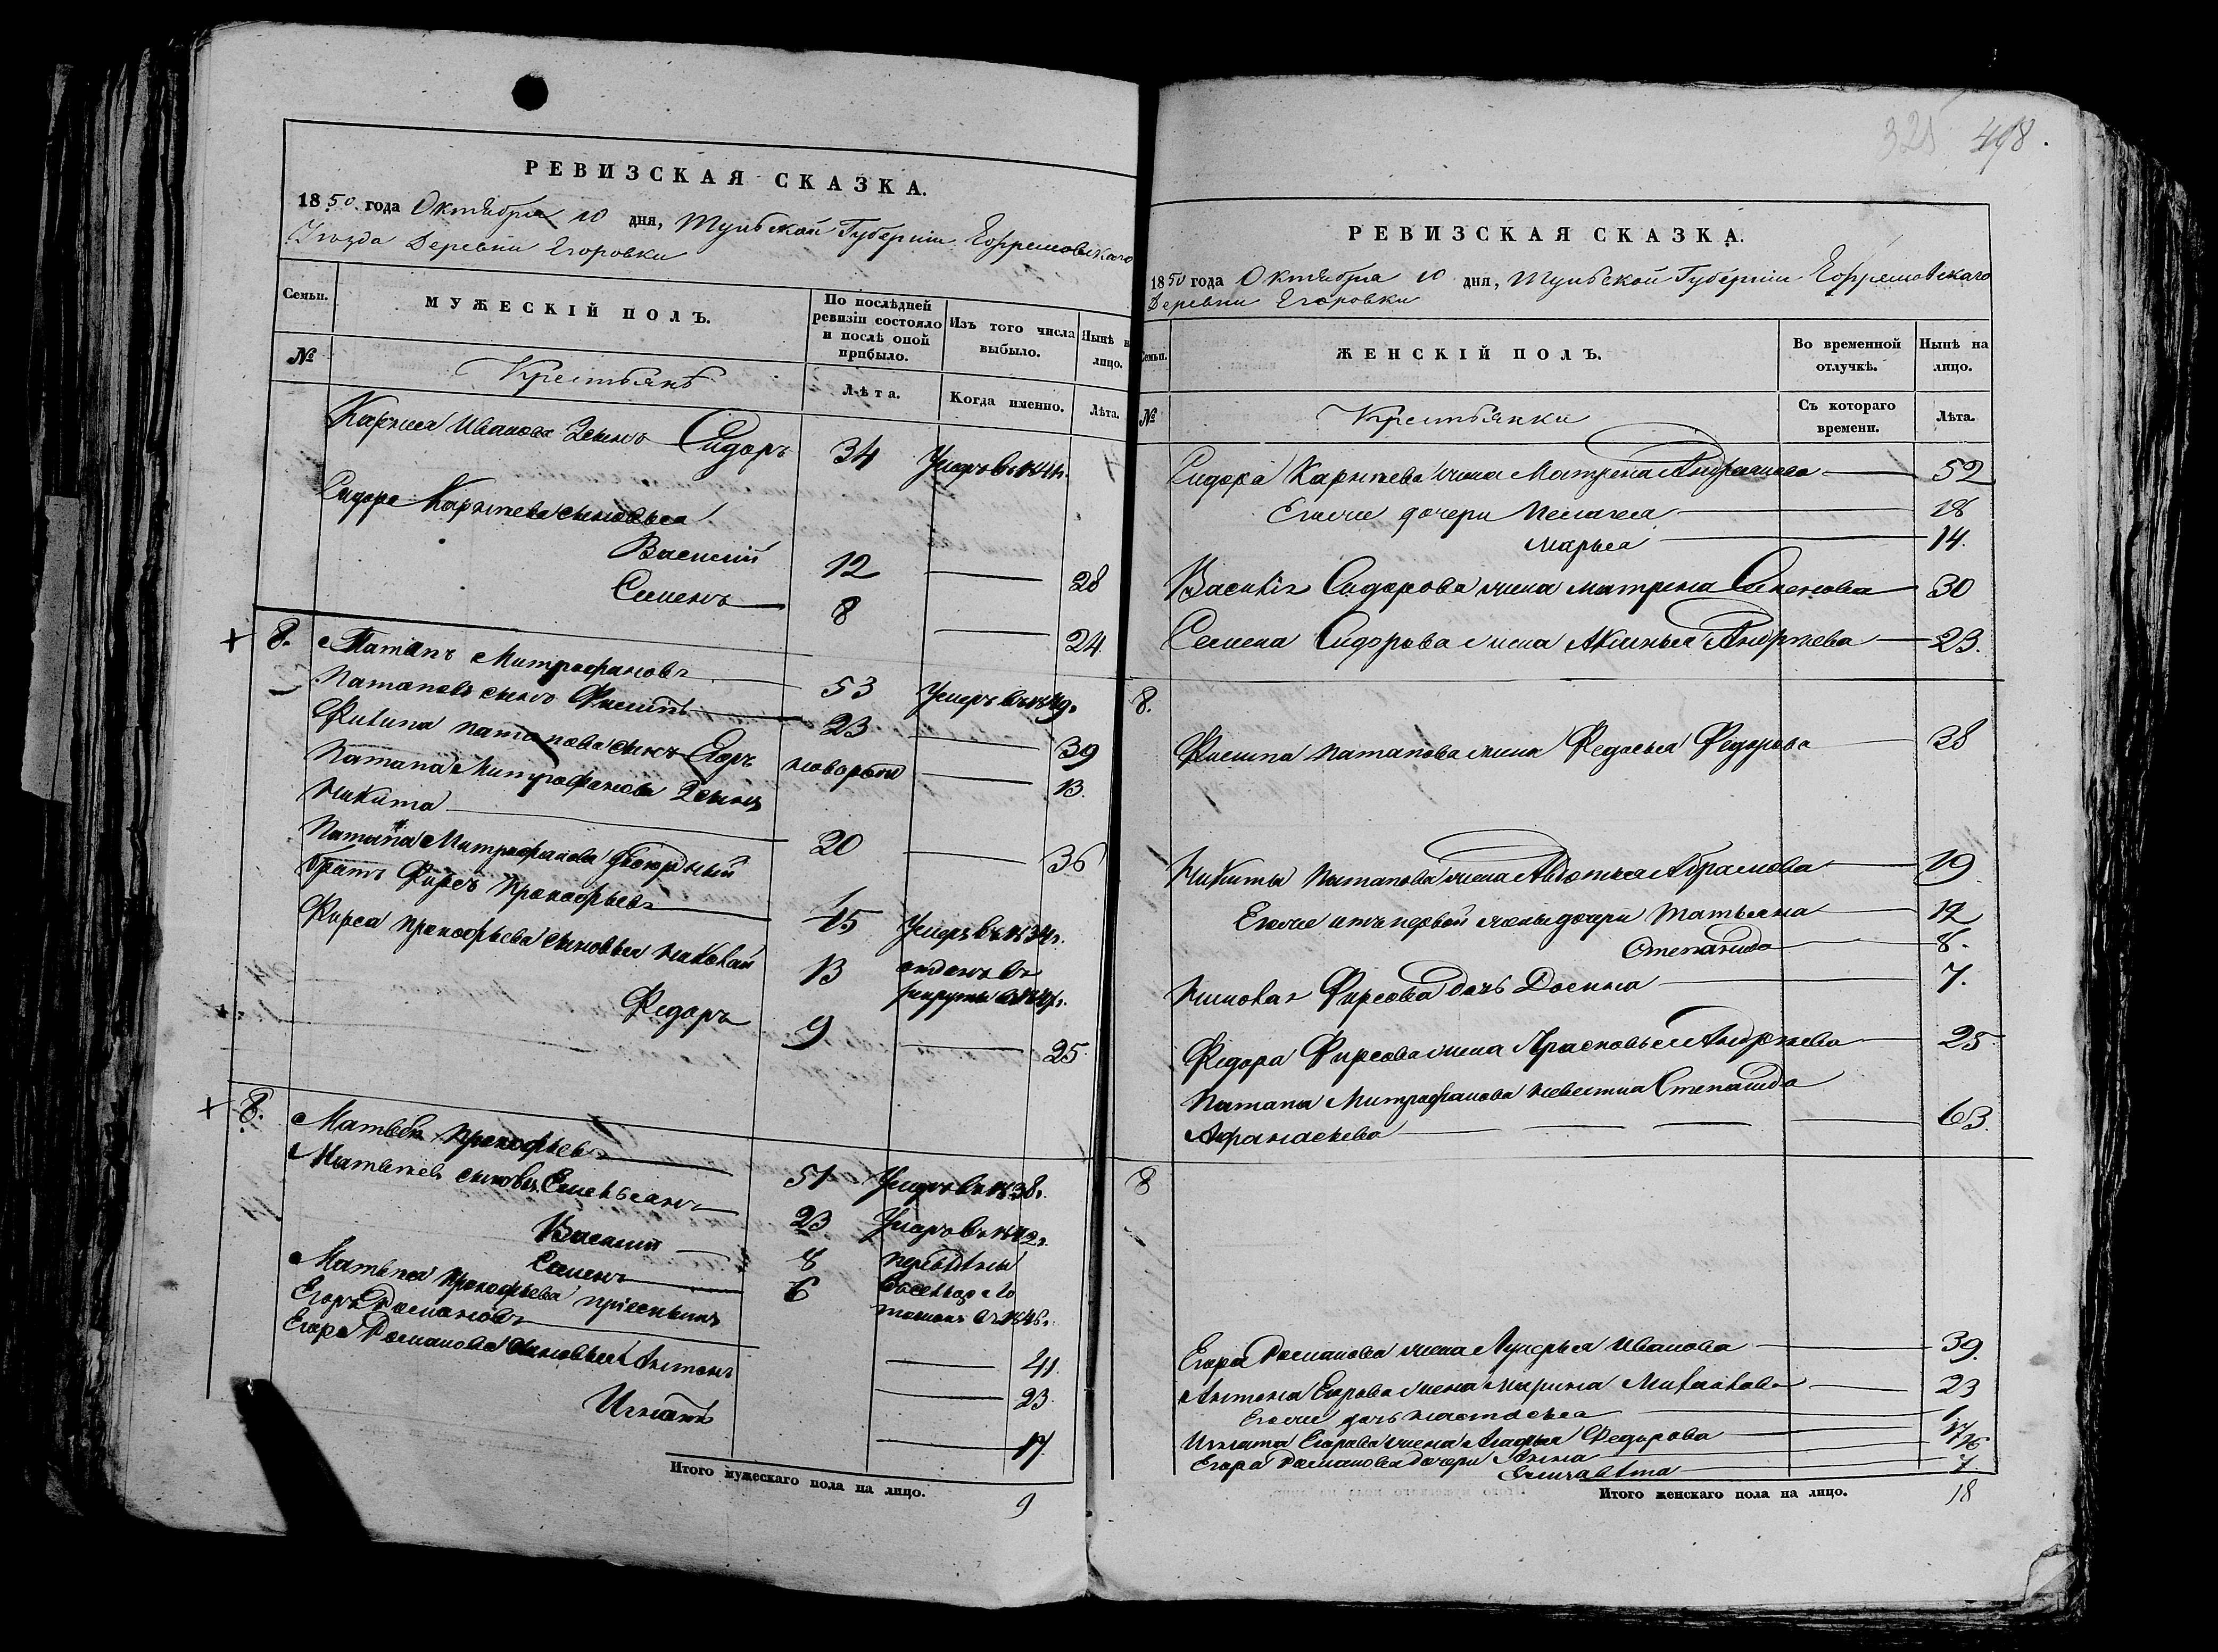 РЕВИЗСКАЯ СКАЗКА.
1850 года Октября 10 дня, Тульской Губернiи Ефремовскаго
Уѣзда Деревни Егоровки
Семьи.
МУЖЕСКIЙ ПОЛЪ.
По послѣдней ревизiи состояло и послѣ оной прибыло.
Изъ того числа выбыло.
Нынѣ н лицо.
№
Крестьянъ
Лѣта.
Когда именно.
Лѣта.
Иванова 2 сынъ Сидоръ 34 Умеръ въ
Сидора сыновья
Василий 12 28
Семенъ 8 24
8. Патапъ Митрофановъ 53 Умеръ въ
Патаповъ сынъ Филипъ 23 39
Филипа Патапова сынъ Егоръ новорож 13
Патапа Митрофанова 2 сынъ
Никита 20 36
Патапа Митрофанова двоюрдный
братъ Фирсъ Прокофьевъ 45 Умеръ въ
Фирса Прокофьева сыновья Николай 13 отданъ въ рекруты
Федоръ 9 25
8. Матвей Прокофьевъ 51 Умеръ въ
Матвеевы сыновья Емельянъ 23 Умеръ въ
Василий 8
Семенъ 6
Матвея Прокофьева прiемышъ
Егоръ Романовъ 41.
Егора Романова сыновья Антонъ 23.
Игнатъ 17.
Итого мужескаго пола на лицо.
9
325 498.
РЕВИЗСКАЯ СКАЗКА.
1850 года Октября 10 дня, Тульской Губернiи Ефремовскаго
Деревни Егоровки
Семьи.
ЖЕНСКIЙ ПОЛЪ.
Во временной отлучкѣ.
Нынѣ на лицо.
№
Крестьянки
Съ котораго времени.
Лѣта.
Сидора жена Матрена 52
Егоже дочери Пелагея 18
Марья 14.
Василiя Сидорова жена Матрена Семенова 30
Семена Сидорова жена Акинья Андреева 23.
8.
Филипа Патапова жена Федосья Федорова 38
Никиты Патапова жена Авдотья Абрамова 19
Егоже отъ первой жены дочери Татьяна 12
Степанида 8.
Николая Фирсова дочь 7.
Федора Фирсова жена Прасковья Андреева 25
Патапа Митрофанова невестка Степанида
Афанасьева 63.
8
Егора Романова жена Лукерья Иванова 39.
Антона Егорова жена Марина 23
Егоже дочь Настасья 1
Игната Егорова жена Агафья Федорова 17
Егора Романова дочери Анна 16
Елизавета 7.
Итого женскаго пола на лицо.
18